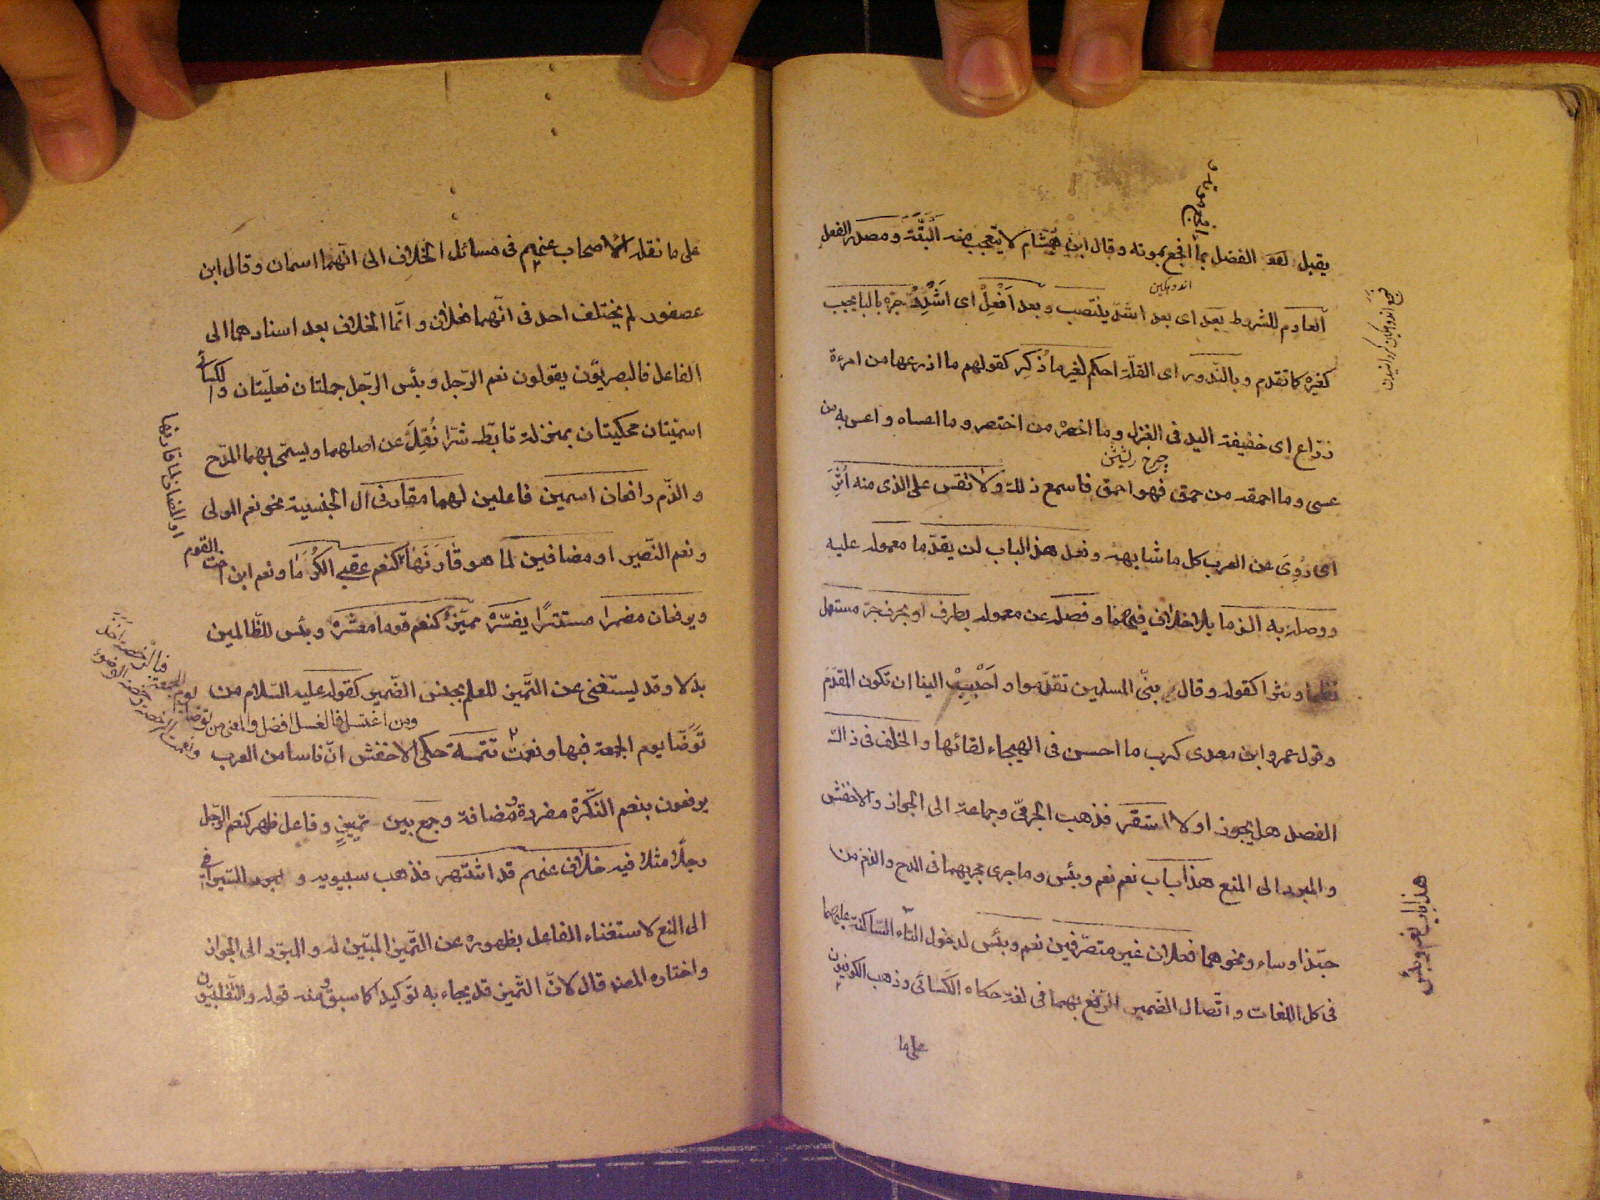 يقبل الفضل بما افجع بموته وقال ابن هشام لا يتعجب منه البتّة ومصدر الفعل
العادم للشروط بعد اى بعد اشدّ ينتصب وبعد افعل اى اشدد جرّه بالبا يجب
اندوهگين
كغيره كما تقدم وبالنّدور اى القلّة احكم لغير ما ذكر كقولهم ما اذرعها من امرءة
ذرّاع اى خفيفة اليد فى الغزل وما اخصره من اختصر وما اعساه واعس به من
عسى وما احمقه من حمق فهو احمق فاسمع ذلك ولا تقس على الذى منه اثر
اى روى عن العرب كل ما شابهه وفعل هذا الباب لن يقدّما معموله عليه
ووصله به الزما بلا خلاف فيهما وفصله عن معموله بظرف او بحرف جرّ مستعمل
نظما ونثرا كقوله وقال نبىّ المسلمين تقدّموا واحبب الينا ان تكون المقدّم
وقول عمرو ابن معدى كرب ما احسن فى الهيجاء لقائها والخلف فى ذاك
الفصل هل يجوز او لا استقر فذهب الجرمىّ وجماعة الى الجواز والاخفش
والمبرد الى المنع هذا باب نعم وبئس وما جرى مجريهما فى المدح والذم من
حبّذا وساء ونحوهما فعلان غير متصرّفين نعم وبئس لدخول التاء السّاكنة عليهما
فى كل اللغات واتّصال الضمير الرّفع بهما فى لغة حكاه الكسائى وذهب الكوفيون
على ما
هذا باب نعم وبئس
على ما نقله الاصحاب عنهم فى مسائل الخلاف الى انّهما اسمان وقال ابن
عصفور لم يختلف احد فى انّهما فعلان وانّما الخلاف بعد اسنادهما الى
الفاعل فالبصريّون يقولون نعم الرّجل وبئس الرّجل جملتان فعليّتان والكسائى
اسميّتان محكيتان بمنزلة تابّط شرّا نقل عن اصلهما ويسمّى بهما المدح
والذّم رافعان اسمين فاعلين لهما مقارنى ال الجنسية نحو نعم المولى
ونعم النّصير او مضافين لما هو قارنها كنعم عقبى الكرما ونعم ابن اخت القوم
ويرفعان مضمرا مستترا يفسّره مميّز كنعم قوما معشره وبئس للظّالمين
بدلا وقد يستغنى عن التّميز للعلم بجنس الضّمير كقوله عليه السّلام من
توضّا يوم الجمعة فبها ونعمت تتمّة حكى الاخفش انّ ناسا من العرب
ومن اغتسل فالغسل افضل والمعنى من توضّا يوم الجمعة
يرفعون بنعم النّكرة مفردة ومضافة وجمع بين تميز وفاعل ظهر كنعم الرّجل
رجلا مثلا فيه خلاف عنهم قد اشتهر فذهب سيبويه والسّيرافى
الى المنع لاستغناء الفاعل بظهوره عن التّميز المبيّن له والمبرّد الى الجواز
واختاره المصنف قال لانّ التّميز قد يجاء به توكيدا كما سبق ومنه قوله والتّغلبيّون